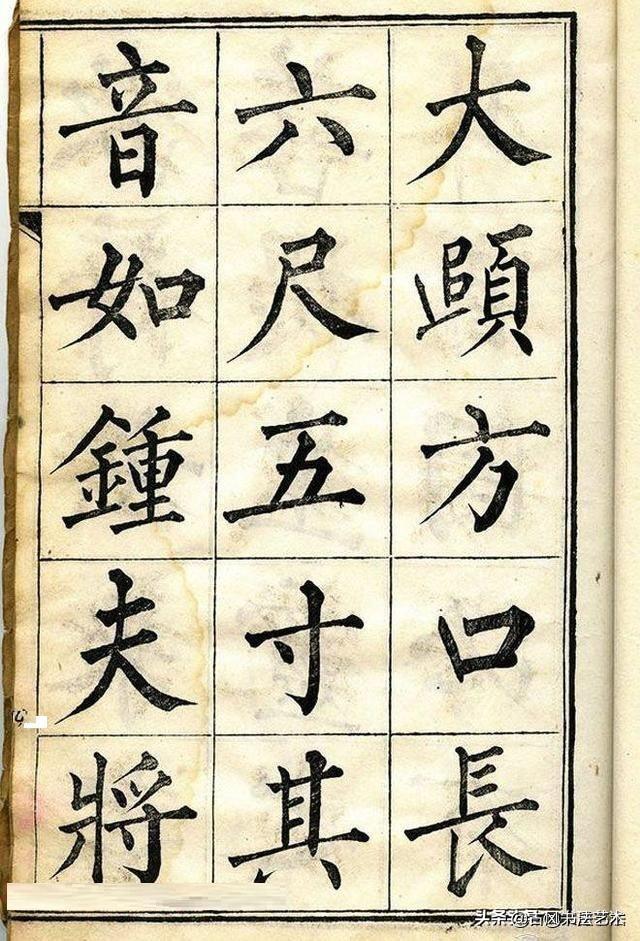 大頤方口長
六尺五寸其
音如鍾夫將
头条 @古风书法艺术